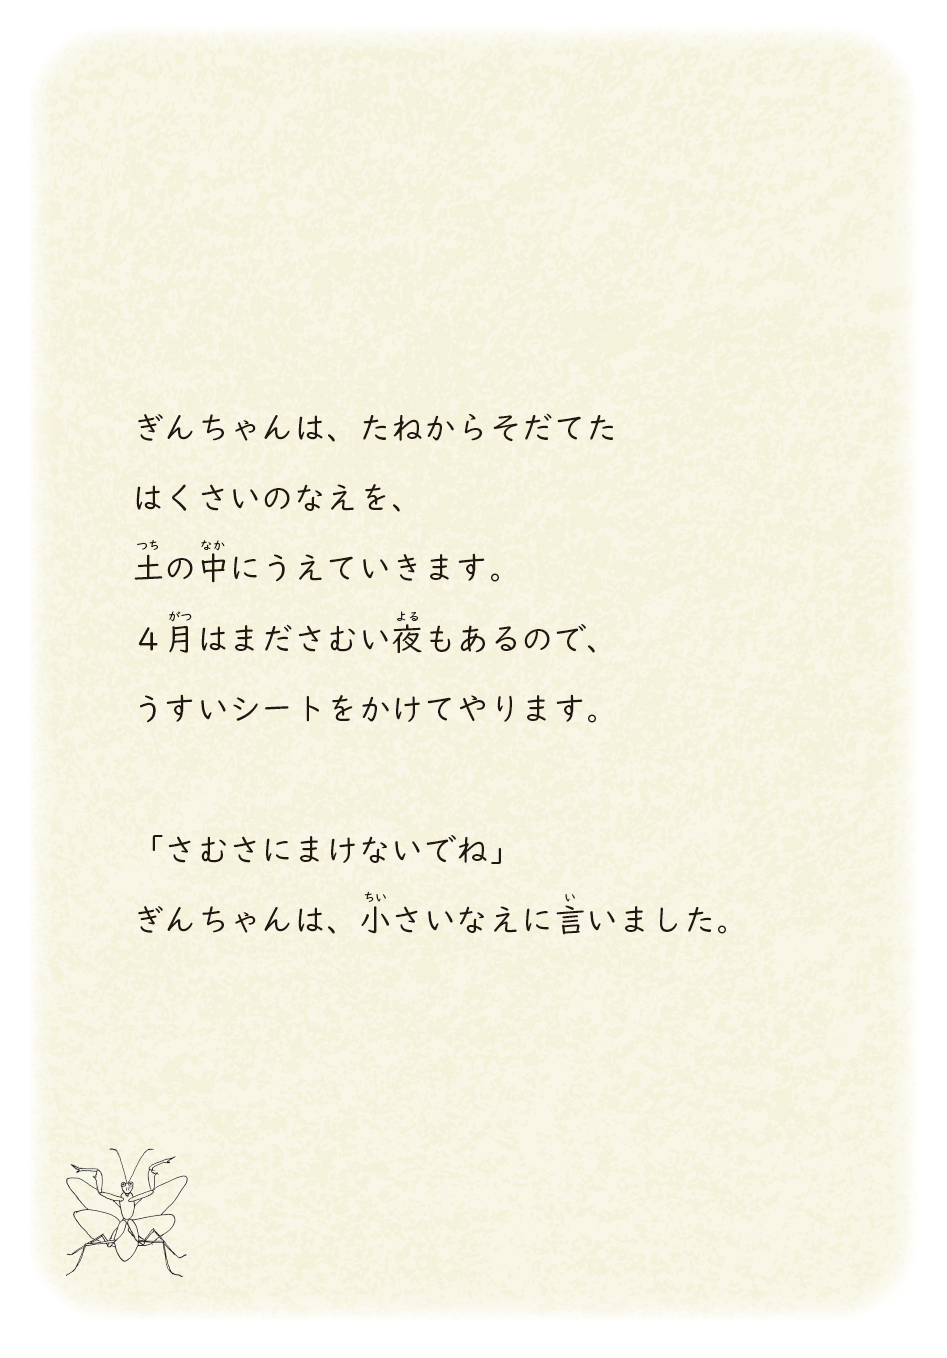 ぎんちゃんは、たねからそだてた
はくさいのなえを、
つち なか
土の中にうえていきます。
がつ よる
４月はまださむい夜もあるので、
うすいシートをかけてやります。
「さむさにまけないでね」
ちい い
ぎんちゃんは、小さいなえに言いました。